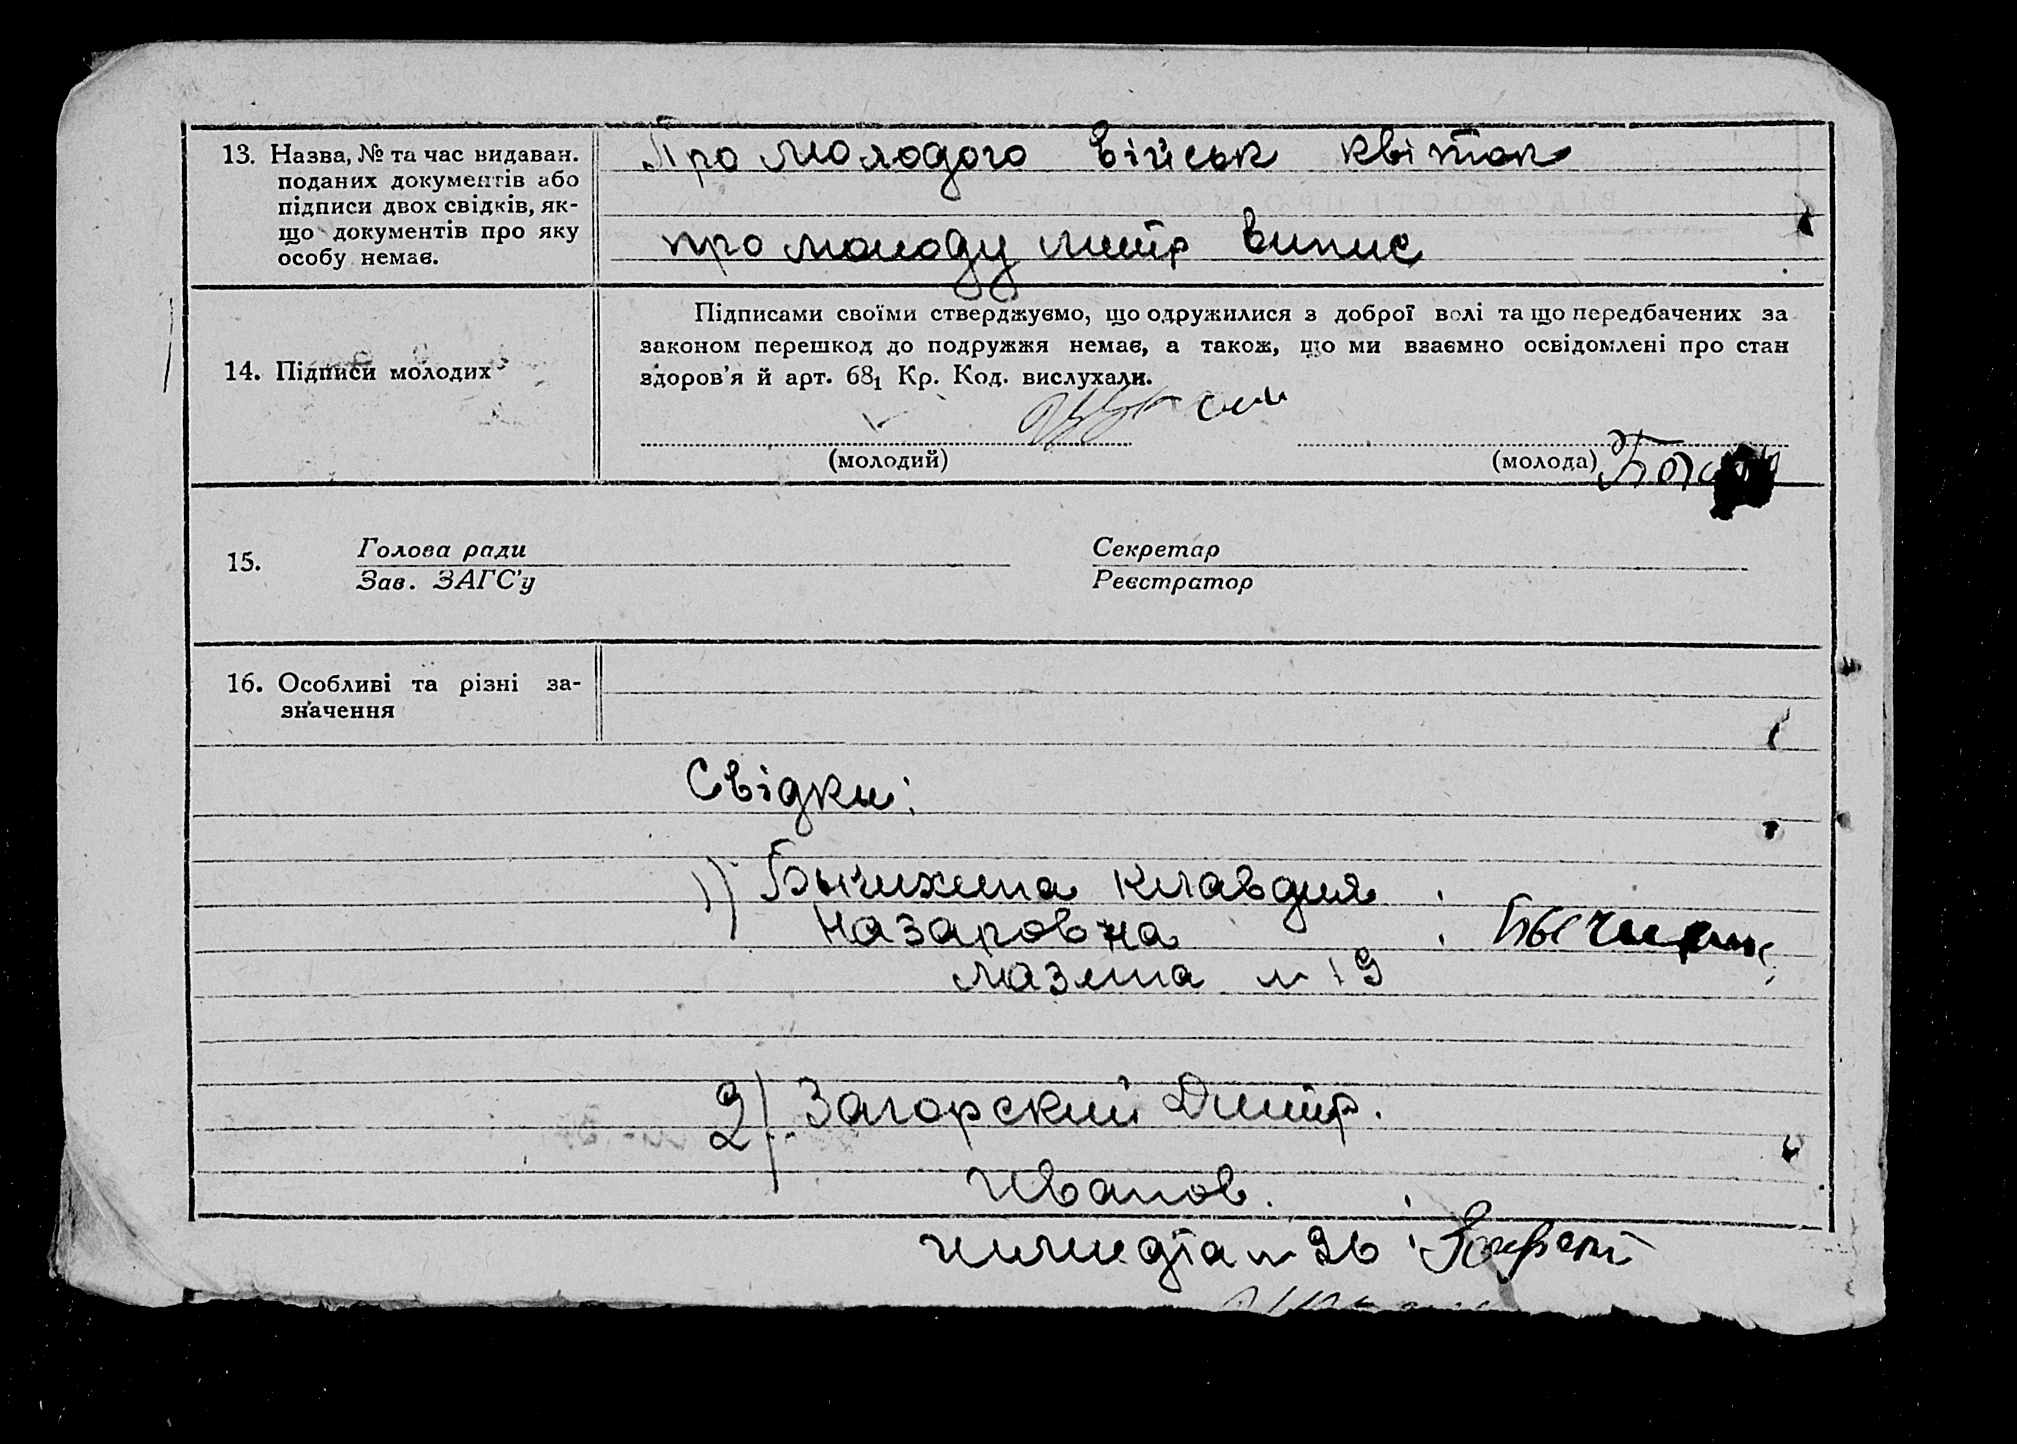 13. Назва, № та час видаван.
поданих документів або
підписи двох свідків, як-
що документів про яку
особу немає.
Про молодого військ квіток
про молоду метр випис
14. Підписи молодих
Підписами своїми стверджуємо, що одружилися з доброї волі та що передбачених за
законом перешкод до подружжя немає, а також, що ми взаємно освідомлені про стан
здоров'я й арт. 68₁ Кр. Код. вислухали.
(молодий)
(молода)
15.
Голова ради
Зав. ЗАГС'у
Секретар
Реєстратор
16. Особливі та різні за-
значення
Свідки:
1) Бычихина Клавдия
Назаровна
19
2) Загорский Дмитр.
Иванов.